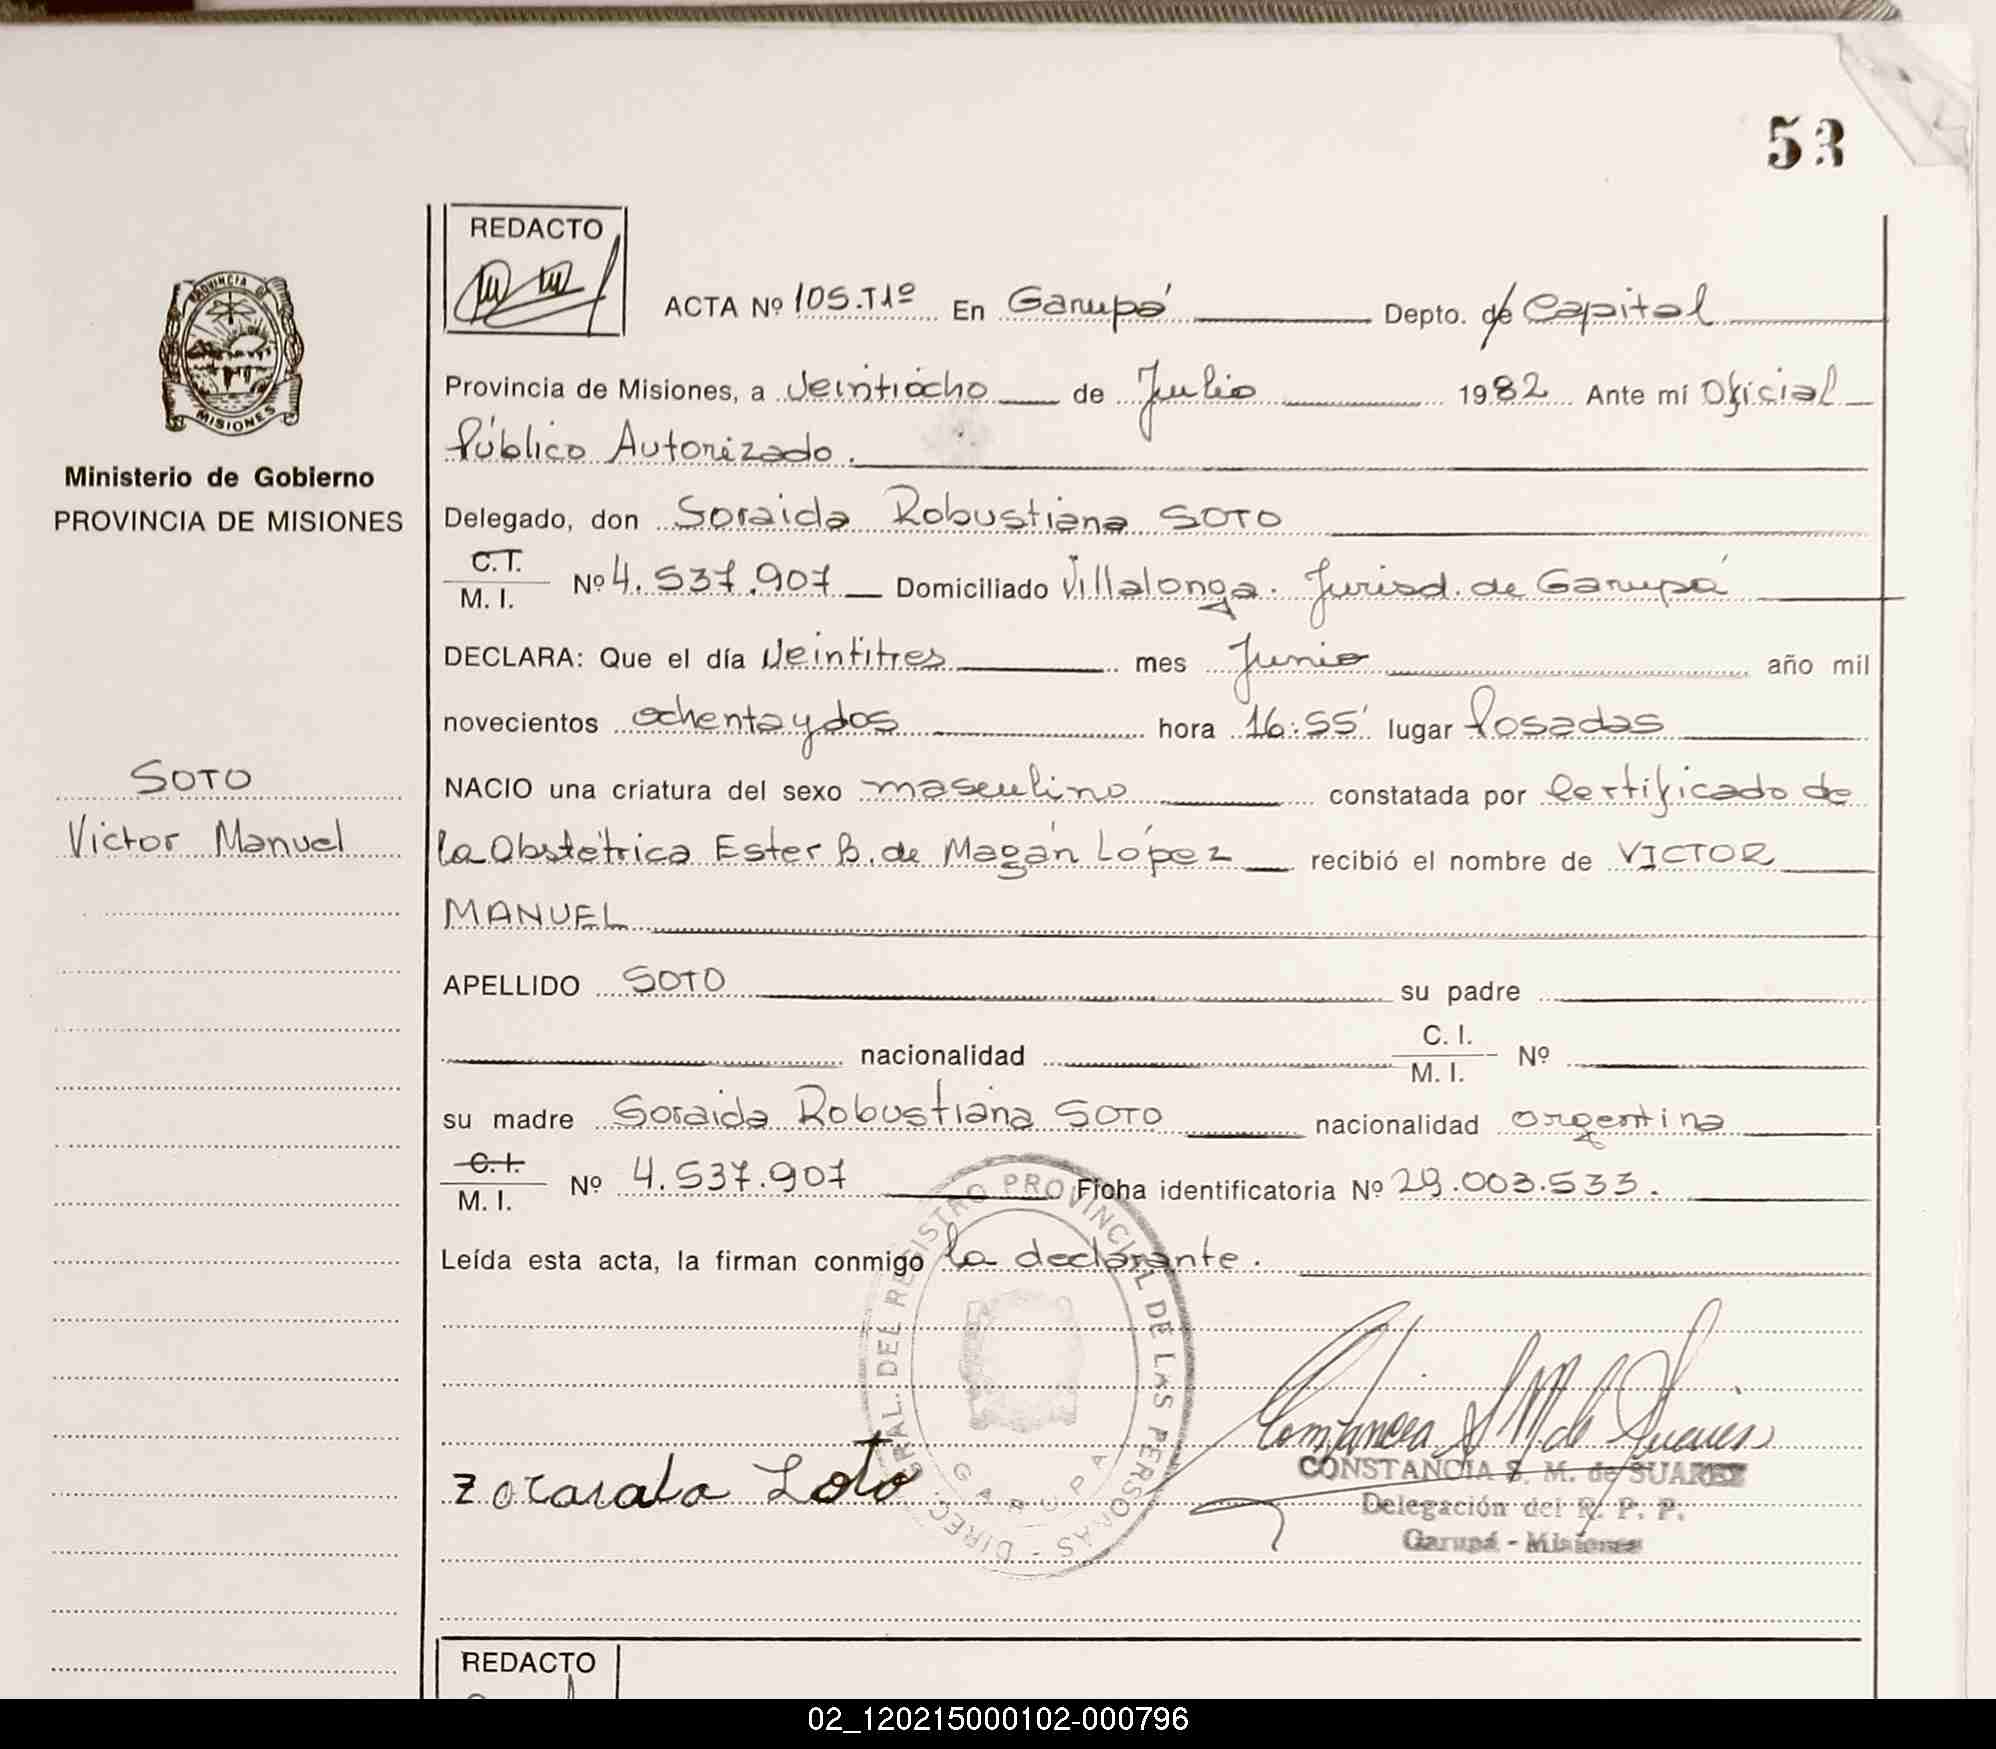 53
REDACTO
ACTA Nº 105.T1º En Garupá Depto. de Capital
PROVINCIA DE
MISIONES
Provincia de Misiones, a veintiocho de Julio 1982 Ante mí Oficial
Público Autorizado.
Ministerio de Gobierno
PROVINCIA DE MISIONES
Delegado, don Soraida Robustiana SOTO
C.T.
M. I. Nº 4.537.907 Domiciliado Villalonga. Jurisd. de Garupá
DECLARA: Que el día veintitres mes Junio año mil
novecientos ochenta y dos hora 16:55' lugar Posadas
SOTO
Victor Manuel
NACIO una criatura del sexo masculino constatada por Certificado de
la Obstétrica Ester B. de Magán López recibió el nombre de VICTOR
MANUEL
APELLIDO SOTO su padre
nacionalidad C. I.
M. I. Nº
su madre Soraida Robustiana SOTO nacionalidad argentina
C. I.
M. I. Nº 4.537.907 Ficha identificatoria Nº 29.003.533.
Leída esta acta, la firman conmigo la declarante.
DIREC. GRAL. DEL REGISTRO PROVINCIAL DE LAS PERSONAS -
GARUPA
Constancia S M. de Suarez
CONSTANCIA S. M. de SUAREZ
Delegación del R. P. P.
Garupá - Misiones
Zoraida Soto
REDACTO
02_120215000102-000796